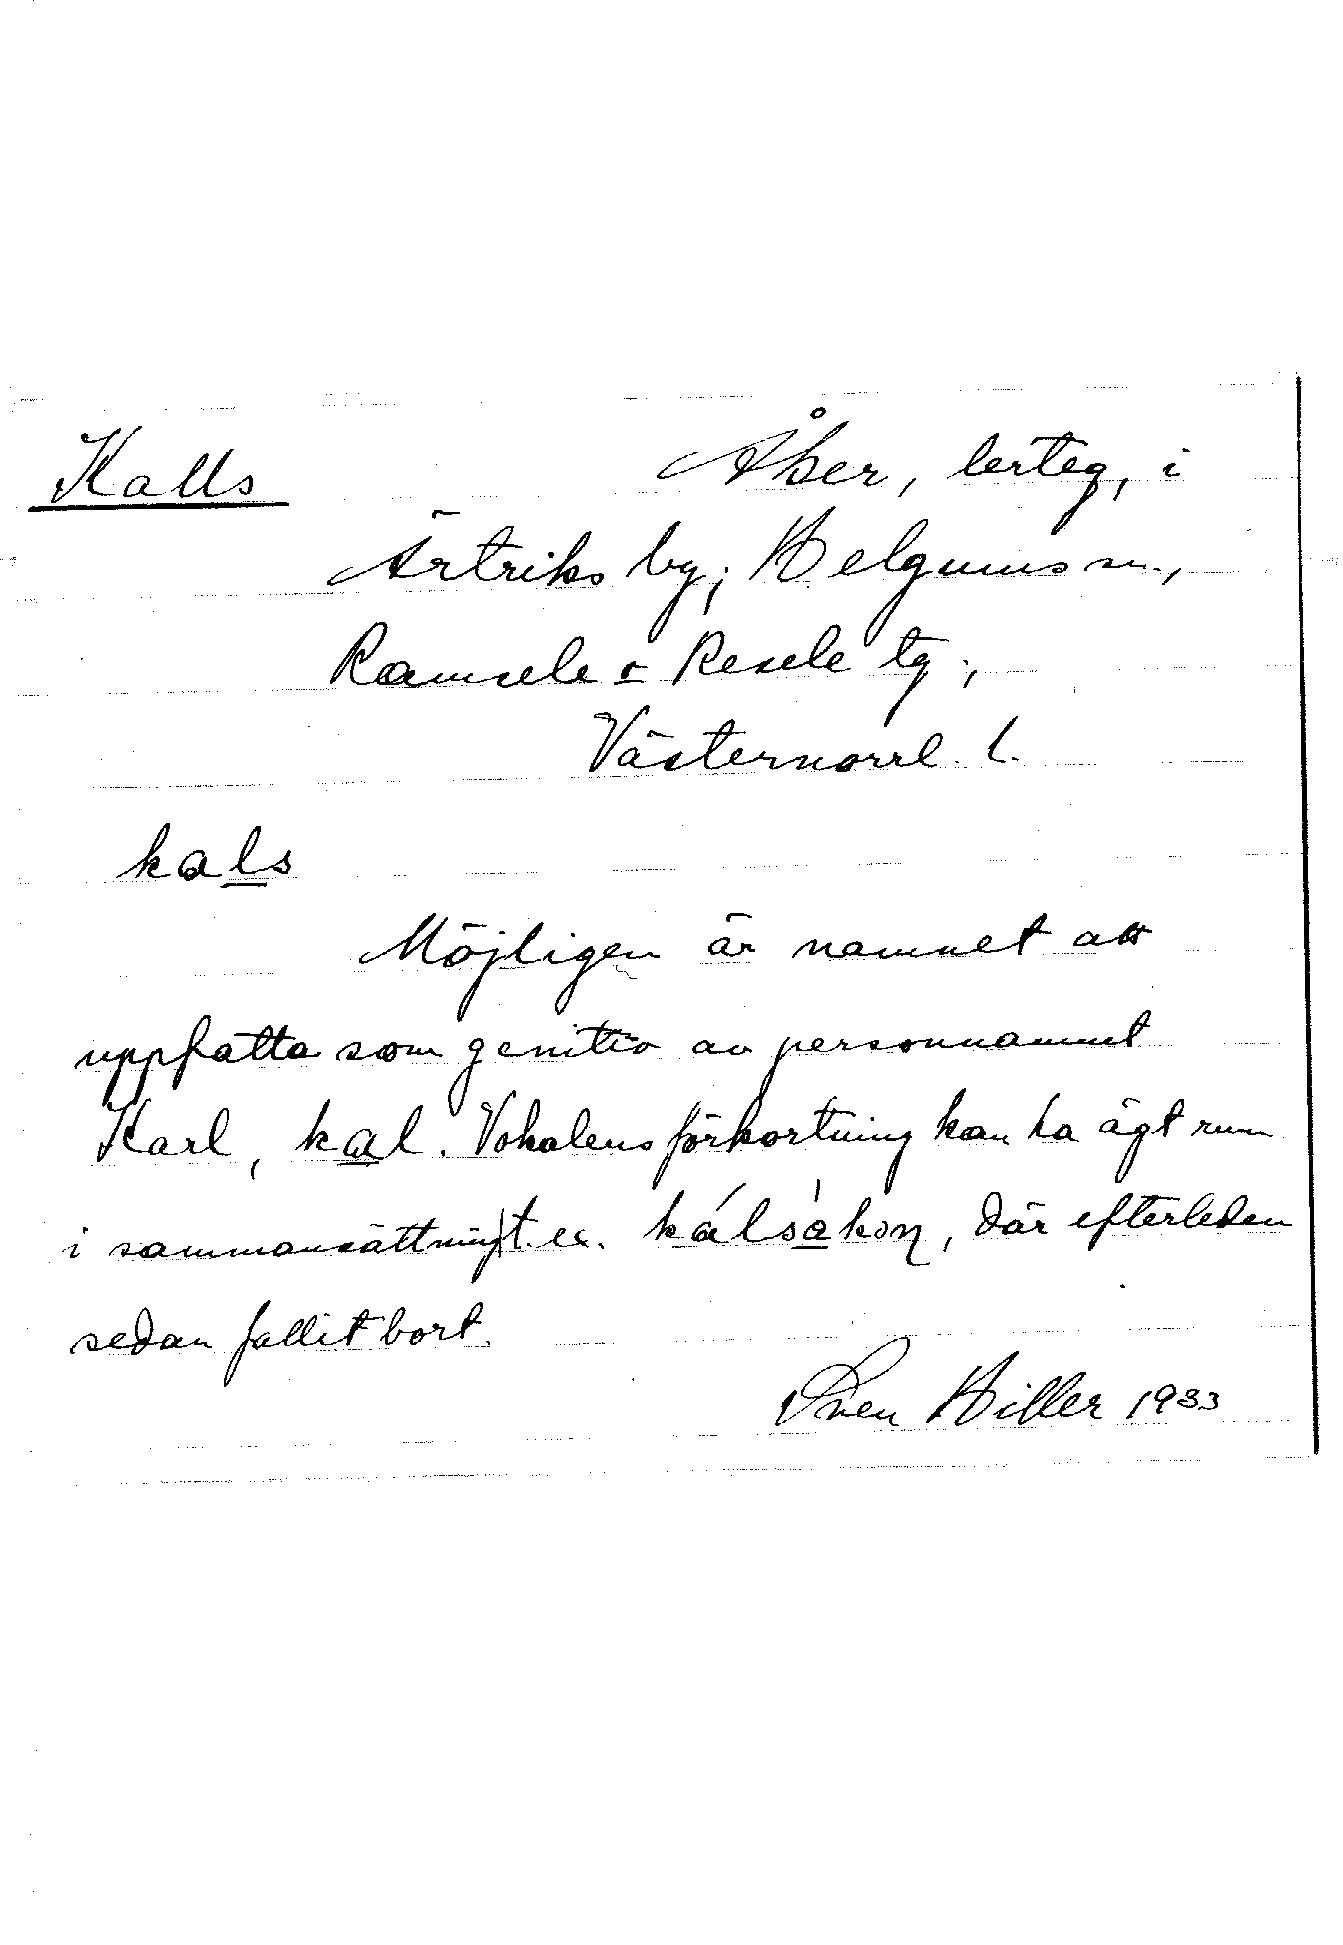 Kalls Åker, lerteg, i
Ärtriks by; Helgums sn.,
Ramsele o Resele tg.,
Västernorrl. l.
kals
Möjligen är namnet att
uppfatta som genitiv av personnamnet
Karl, kal. Vokalens förkortning kan ha ägt rum
i sammansättning t. ex. kálsàkɔŋ, där efterleden
sedan fallit bort.
Sven Hiller 1933